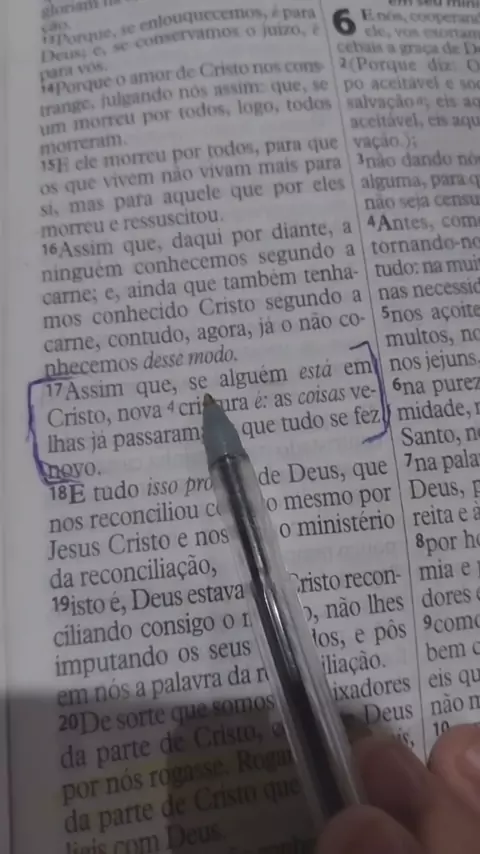 gloriam na
ção.
13Porque, se enlouquecemos, é para
Deus; e, se conservamos o juízo, é
para vós.
14Porque o amor de Cristo nos cons-
trange, julgando nós assim: que, se
um morreu por todos, logo, todos
morreram.
15E ele morreu por todos, para que
os que vivem não vivam mais para
si, mas para aquele que por eles
morreu e ressuscitou.
16Assim que, daqui por diante, a
ninguém conhecemos segundo a
carne; e, ainda que também tenha-
mos conhecido Cristo segundo a
carne, contudo, agora, já o não co-
nhecemos desse modo.
17Assim que, se alguém está em
Cristo, nova 4 criatura é: as coisas ve-
lhas já passaram; que tudo se fez
novo.
18E tudo isso pro de Deus, que
nos reconciliou c o mesmo por
Jesus Cristo e nos o ministério
da reconciliação,
19isto é, Deus estava Cristo recon-
ciliando consigo o não lhes
imputando os seus dos, e pôs
em nós a palavra da r iliação.
20De sorte que somos ixadores
da parte de Cristo, Deus
por nós rogasse. Rogam
da parte de Cristo que
liais com Deus.
em seu mini
6 E nós, cooperand
ele, vos exortam
cebais a graça de D
2(Porque diz: O
po aceitável e soc
salvação; eis aq
aceitável, eis aqu
vação.);
3não dando nó
alguma, para q
não seja censu
4Antes, com
tornando-no
tudo: na mui
nas necessid
5nos açoite
multos, no
nos jejuns,
6na purez
midade, n
Santo, n
7na pala
Deus, p
reita e à
8por ho
mia e p
dores e
9como
bem c
eis qu
não m
10